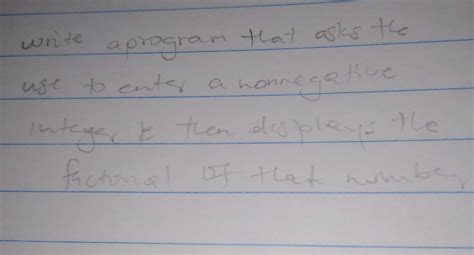 write a program that asks the
use to enter a nonnegative
integer & then displays the
factorial of that number